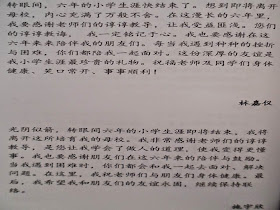 转眼间，六年的小学生涯快结束了。想到即将离开
母校，内心充满了万般不舍。在这漫长的六年里，
我要感谢老师们的谆谆教导，让我受益匪浅。您们
的谆谆教诲，我一定铭记于心。我也要感谢在这
六年来陪伴我的朋友们。每当我遇到种种的挫折
与困难，你们都陪我一起面对。这份深厚的友谊是
我小学生涯最珍贵的礼物。祝福老师及同学们身体
健康、笑口常开、事事顺利！
林嘉仪
光阴似箭，转眼间六年的小学生涯即将结束。我将
离开这所培育我的母校。我非常感谢老师们的谆谆
教导，是您让我学会了做人的道理，使我变得更懂
事。我也感谢朋友们在这六年来的陪伴与鼓励。
当我遇到困难时，你们都会和我一起去面对、解决
问题。在这里，我祝老师们与朋友们身体健康。最
后，我希望我和朋友们的友谊永固，继续保持联
络。
施宇欣